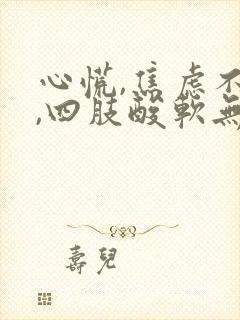 心慌,焦虑不
,四肢酸軟無
壽兒